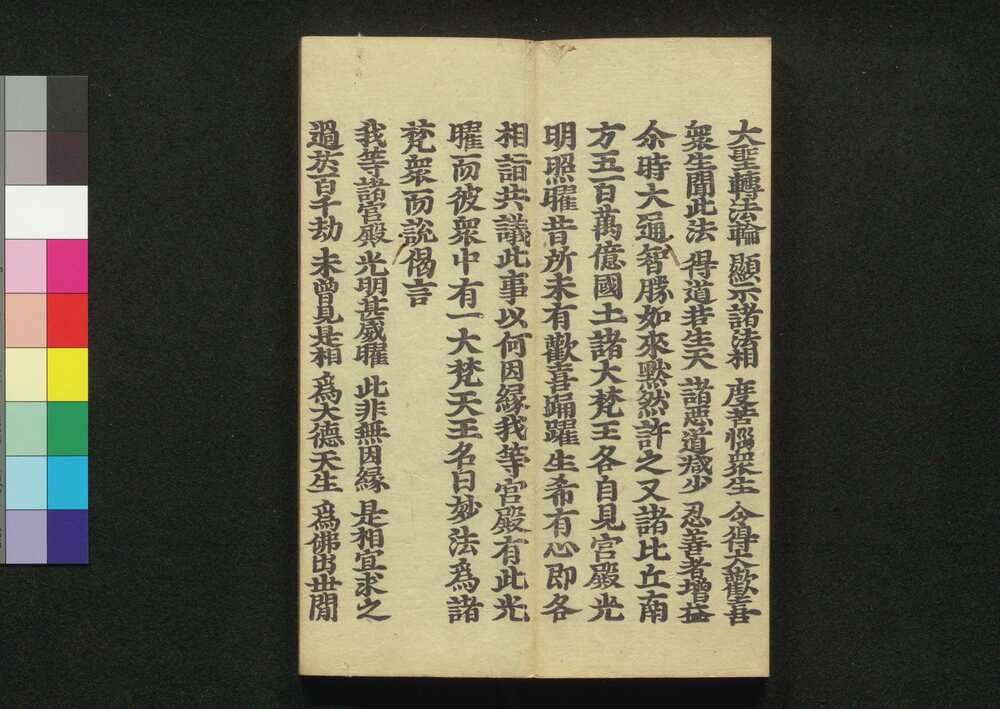 大聖轉法輪 顯示諸法相 度苦惱衆生 令得大歡喜
衆生聞此法 得道若生天 諸惡道減少 忍善者增益
尒時大通智勝如來黙然許之又諸比丘南
方五百萬億國土諸大梵王各自見宮殿光
明照曜昔所未有歡喜踊躍生希有心即各
相詣共議此事以何因緣我等宮殿有此光
曜而彼衆中有一大梵天王名曰妙法爲諸
梵衆而說偈言
我等諸宮殿 光明甚威曜 此非無因緣 是相宜求之
過於百千劫 未曾見是相 爲大德天生 爲佛出世間